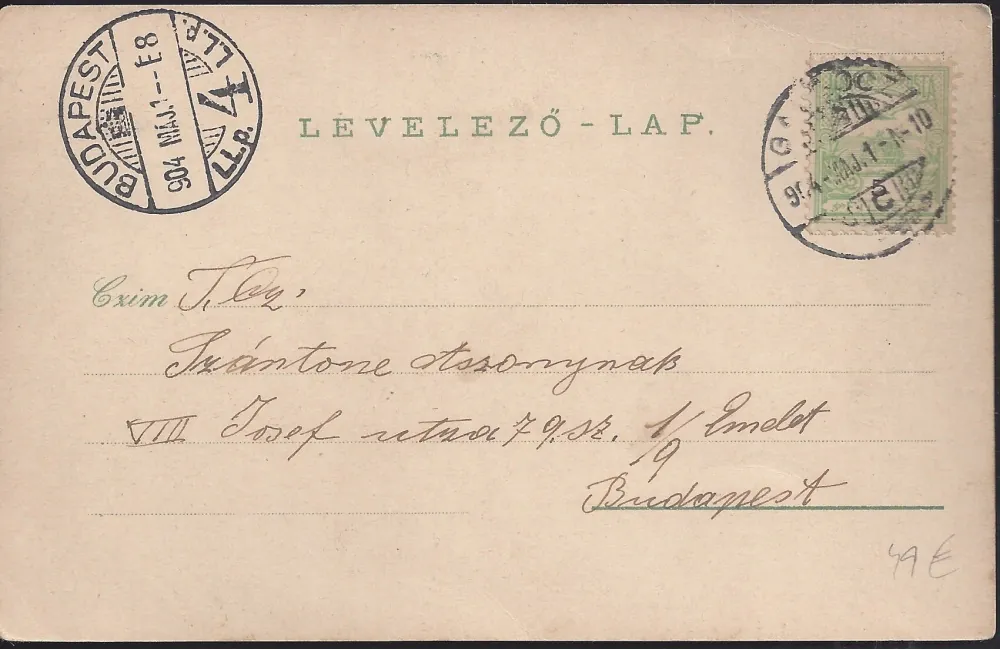 BUDAPEST
904 MÁJ.1--E8
4
LL.P.
LL.P.
LEVELEZŐ-LAP.
904 MÁJ.1-
-10
Czim T. Cz.
Szántone Aszonynak
VIII Josef utza 79.sz. 1/9 Emelet
Budapest
49 €